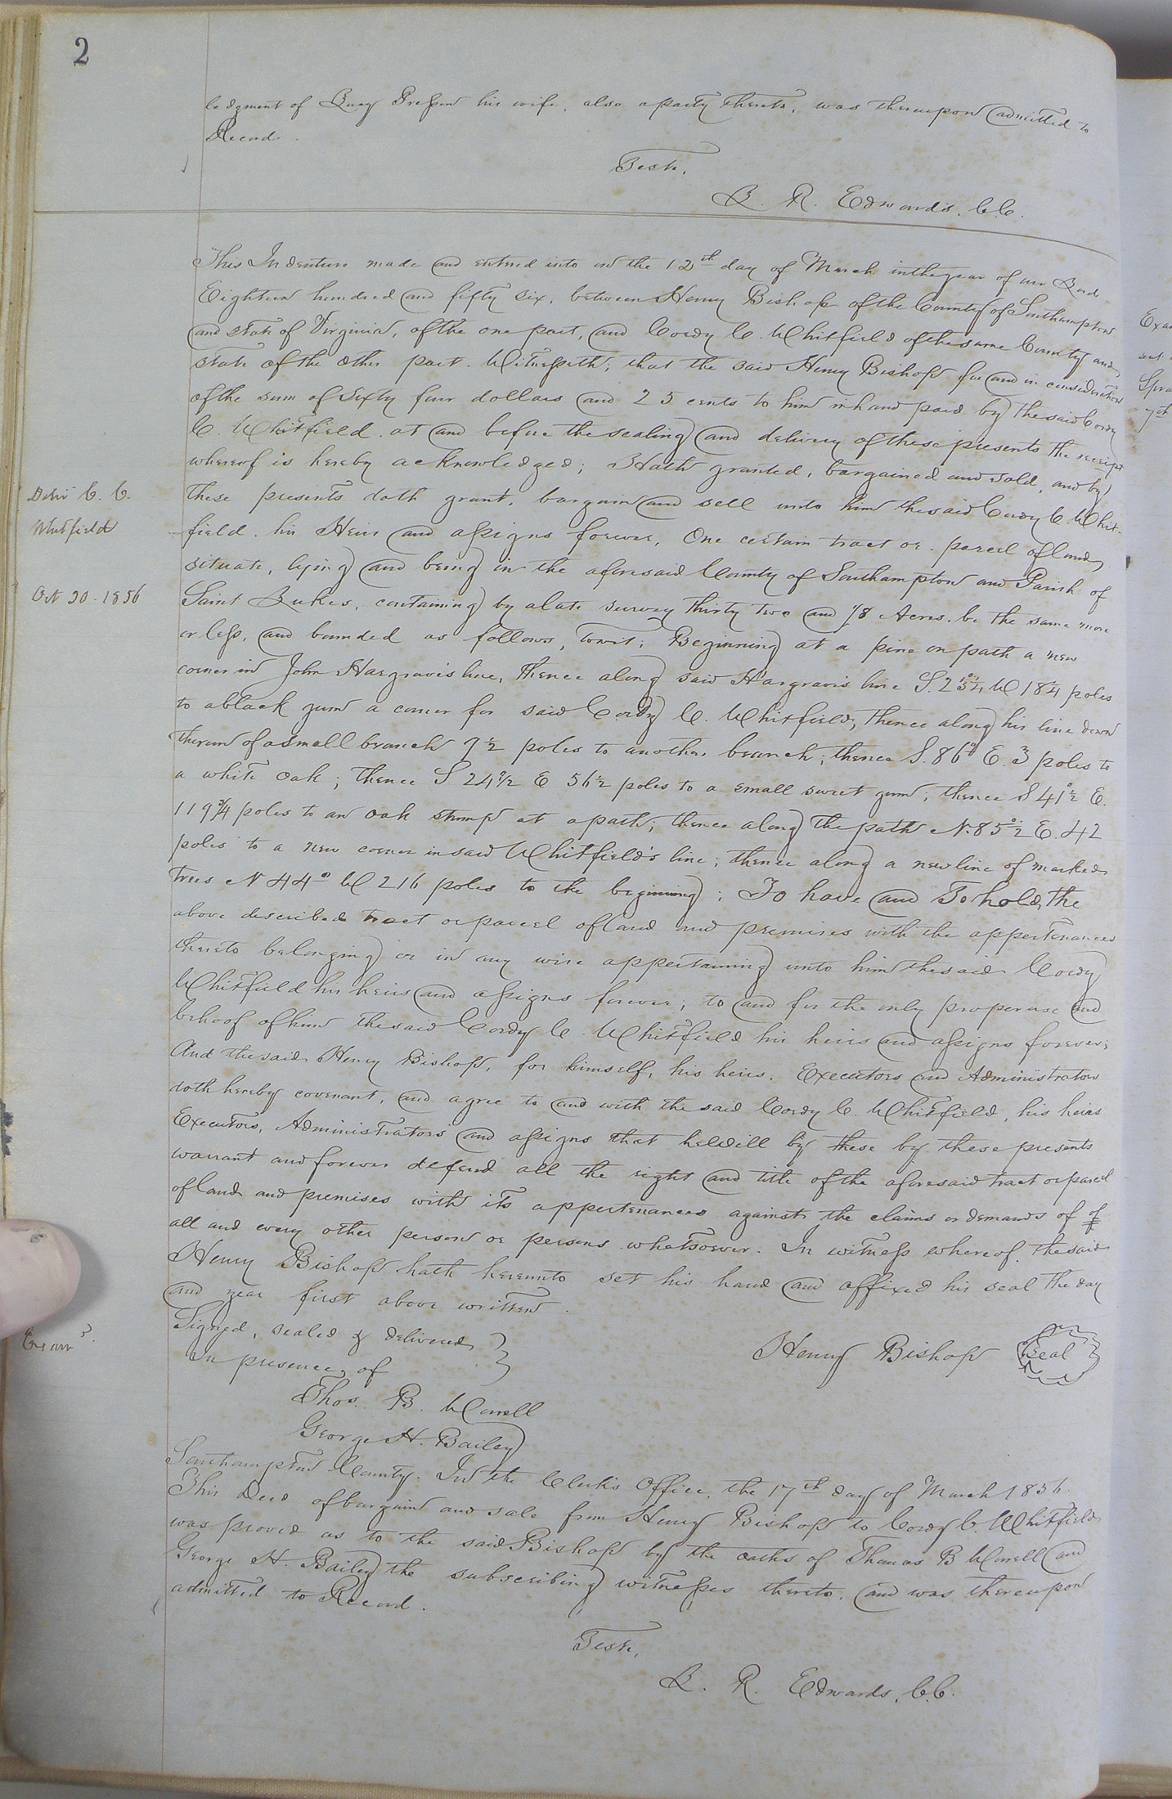 2
ledgment of Lucy Pressen his wife, also a party thereto, was thereupon admitted to
Record.
Teste,
L. R. Edwards, C.C.
This Indenture made and entered into on the 12th day of March in the year of our Lord
Eighteen hundred and fifty six, between Henry Bishop of the County of Southampton
and State of Virginia, of the one part, and Cordy C. Whitfield of the same County and
State of the other part. Witnesseth; that the said Henry Bishop for and in consideration
of the sum of Sixty four dollars and 25 cents to him in hand paid by the said Cordy
C. Whitfield at and before the sealing and delivery of these presents the receipt
whereof is hereby acknowledged; Hath granted, bargained and sold, and by
Deliv C. C.
Whitfield
Oct 20. 1856
these presents doth grant, bargain and sell unto him the said Cordy C. Whit-
field, his Heirs and assigns forever, One certain tract or parcel of land,
situate, lying and being in the aforesaid County of Southampton and Parish of
Saint Lukes, containing by a late survey thirty two and 7/8 Acres, be the same more
or less, and bounded as follows, towit; Beginning at a pine on path a new
corner in John Hargraves line, thence along said Hargraves line W 184 poles
to a black gum a corner for said Cordy C. Whitfield; thence along his line down
the run of a small branch 7 1/2 poles to another branch; thence S. 86° E. 3 poles to
a white oak; thence S 24 1/2 E 56 1/2 poles to a small sweet gum; thence S 41° 1/2 E.
119 3/4 poles to an oak stump at a path; thence along the path N. 85° 1/2 E. 42
poles to a new corner in said Whitfield's line; thence along a new line of marked
trees N 44° W 216 poles to the beginning; To have and To hold, the
above described tract or parcel of land and premises with the appertenances
thereto belonging or in any wise appertaining unto him the said Cordy
Whitfield his heirs and assigns forever; to and for the only proper use and
behoof of him the said Cordy C. Whitfield his heirs and assigns forever;
And the said Henry Bishop, for himself, his heirs, Executors and Administrators
doth hereby covenant, and agree to and with the said Cordy C. Whitfield, his heirs
Executors, Administrators and assigns that he will by these by these presents
warrant and forever defend all the right and title of the aforesaid tract or parcel
of land and premises with its appertenances against the claims or demands of of
all and every other person or persons whatsoever. In witness whereof, the said
Henry Bishop hath hereunto set his hand and affixed his seal the day
and year first above written.
Signed, sealed & delivered
In presence of
Henry Bishop Seal
Exam d.
Thos. B. Worrell
George H. Bailey
Southampton County. In the Clerk's Office, the 17th day of March 1856
This Deed of bargain and sale from Henry Bishop to Cordy C. Whitfield
was proved as to the said Bishop by the oaths of Thomas B Worrell and
George H. Bailey the subscribing witnesses thereto, and was thereupon
admitted to Record.
Teste,
L. R. Edwards, C.C.